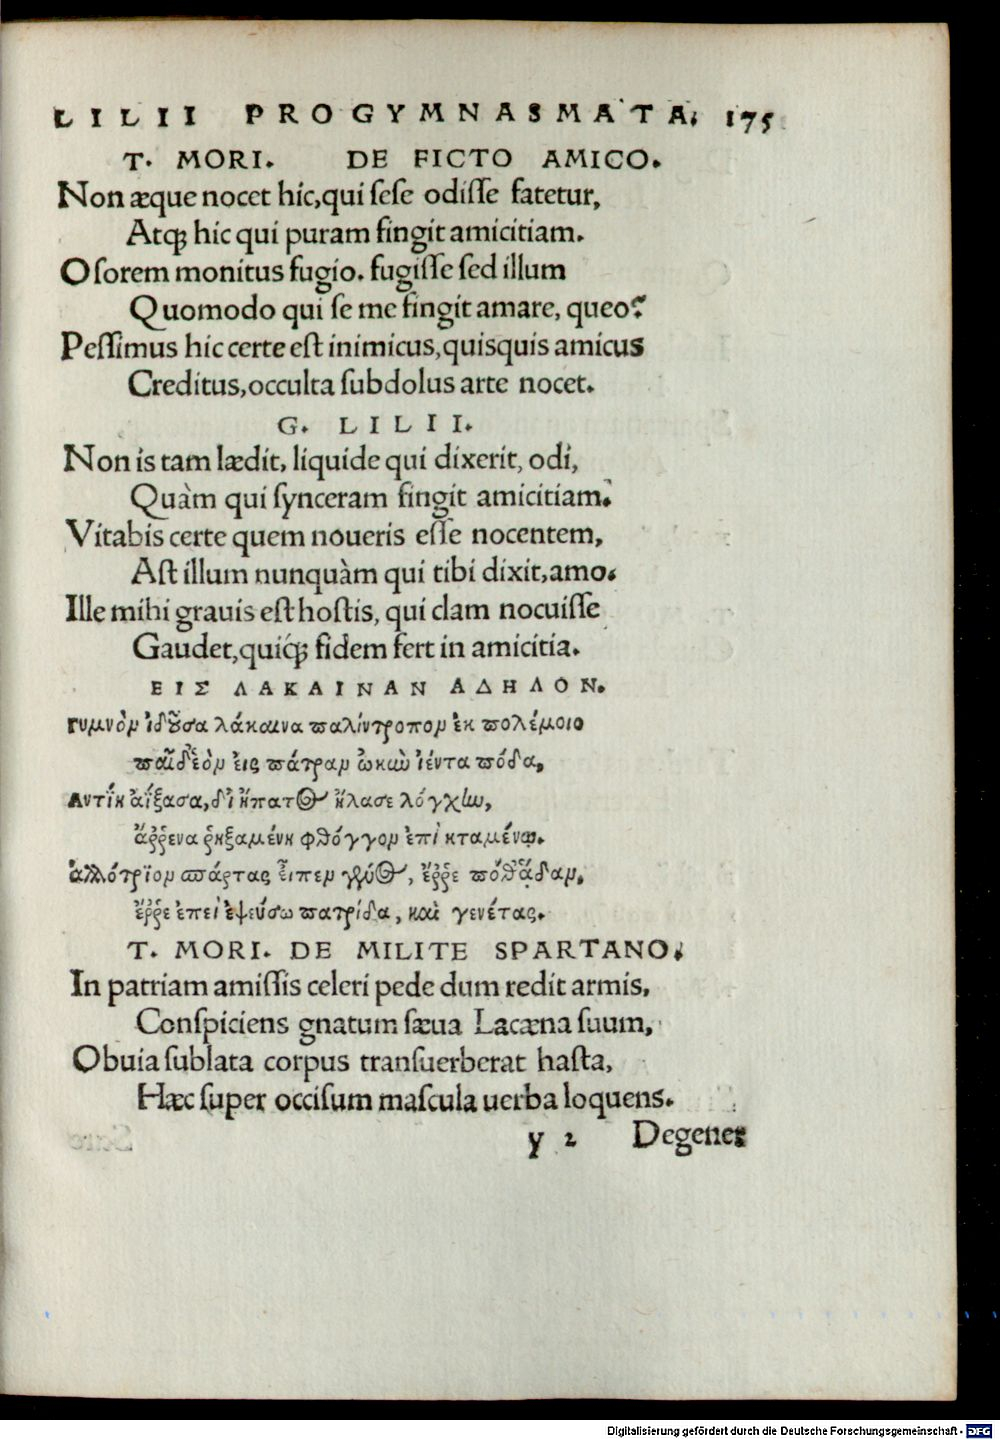 LILII PROGYMNASMATA. 175
T. MORI. DE FICTO AMICO.
Non æque nocet hic, qui ſeſe odiſſe fatetur,
Atqꝫ hic qui puram fingit amicitiam.
Oſorem monitus fugio. fugiſſe ſed illum
Quomodo qui ſe me fingit amare, queo?
Peſſimus hic certe eſt inimicus, quisquis amicus
Creditus, occulta ſubdolus arte nocet.
G. LILII.
Non is tam lædit, liquide qui dixerit, odi,
Quàm qui ſynceram fingit amicitiam.
Vitabis certe quem noueris eſſe nocentem,
Aſt illum nunquàm qui tibi dixit, amo.
Ille mihi grauis eſt hoſtis, qui clam nocuiſſe
Gaudet, quiqꝫ́ fidem fert in amicitia.
ΕΙΣ ΛΑΚΑΙΝΑΝ ΑΔΗΛΟΝ.
Γυμνὸν ἰδοῦσα λάκαινα παλίντροπον ἐκ πολέμοιο
παῖδ' ἑὸν εἰς πάτραν ὠκὺν ἱέντα πόδα,
Αντίη ἀΐξασα, δι' ἥπατος ἤλασε λόγχην,
ἄῤῥενα ῥηξαμένη φθόγγον ἐπὶ κταμένῳ.
ἀλλότριον σπάρτας εἶπεν γένος, ἔῤῥε ποθ' ᾅδαν,
ἔῤῥε ἐπεὶ ἐψεύσω πατρίδα, καὶ γενέτας.
T. MORI. DE MILITE SPARTANO.
In patriam amiſſis celeri pede dum redit armis,
Conſpiciens gnatum ſæua Lacæna ſuum,
Obuia ſublata corpus tranſuerberat haſta,
Hæc ſuper occiſum maſcula uerba loquens.
y 2 Degener
Digitalisierung gefördert durch die Deutsche Forschungsgemeinschaft - DFG